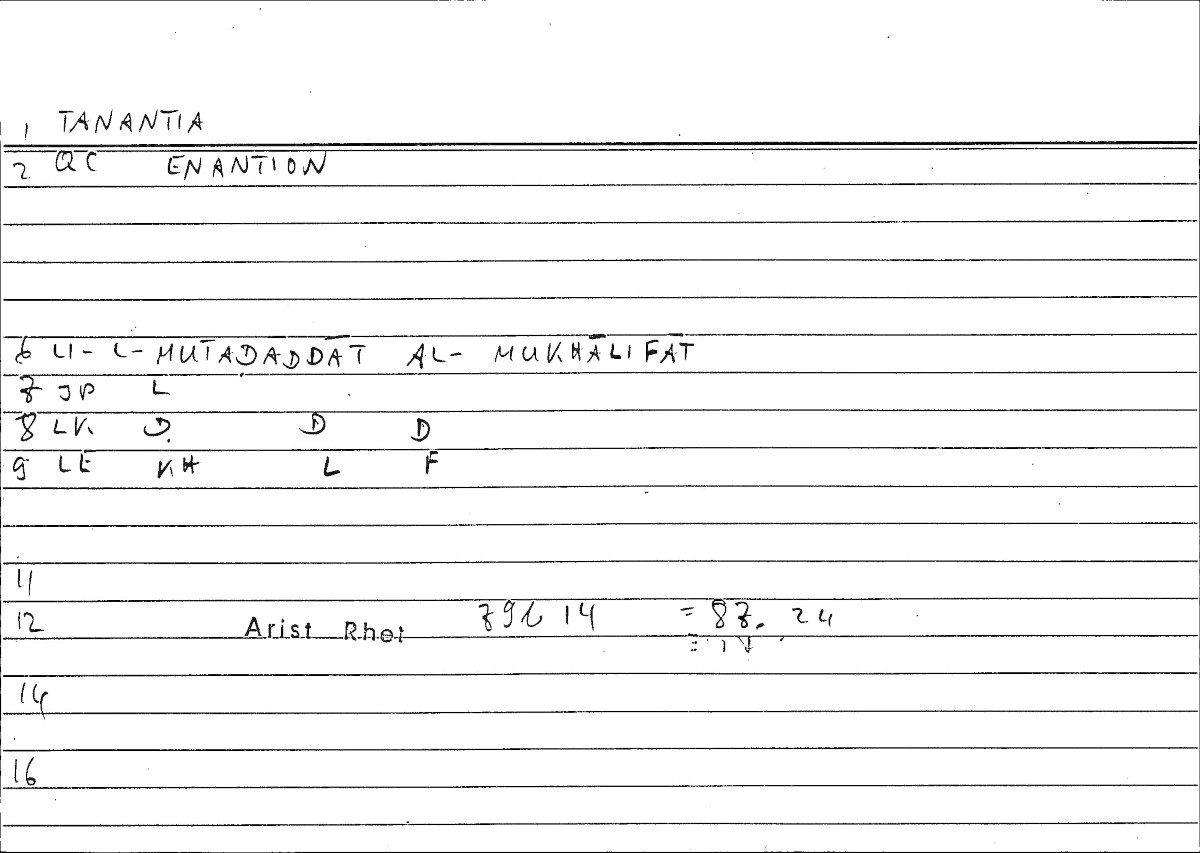 1 TANANTIA
2 QC ENANTION
6 LI- L- MUTAḌĀDDĀT AL- MUKHĀLIFĀT
7 JP L
8 LK Ḍ D D
9 LE KH L F
11
12 Arist Rhet 79b 14 = 87. 24
14
16